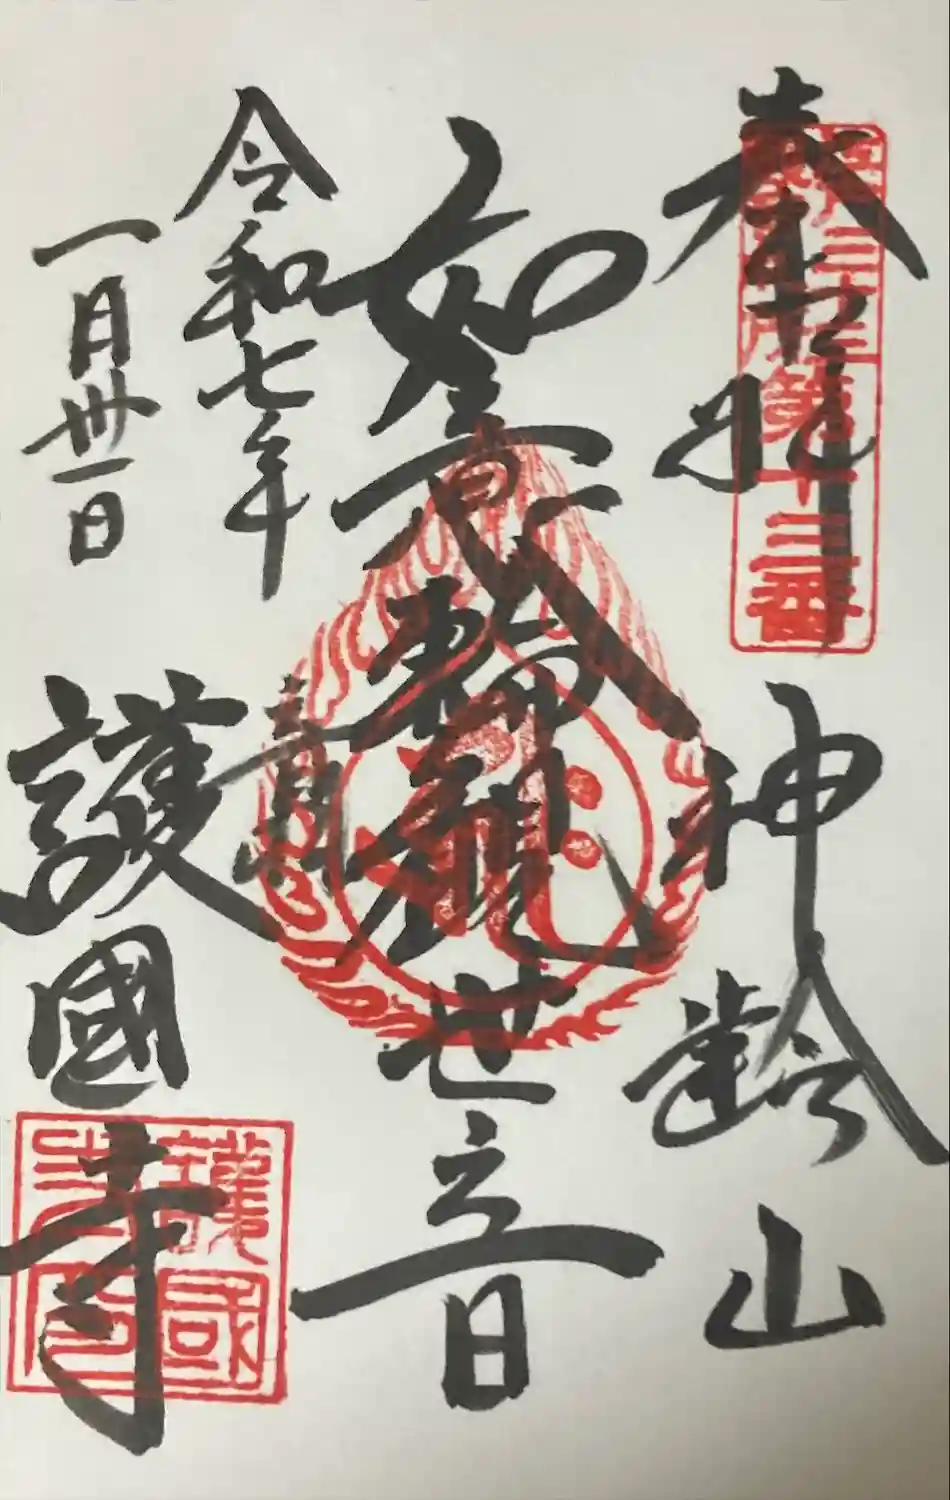 奉拝
神齢山
如意輪観世音
令和七年
一月卅一日
護國寺
第十三番
護國